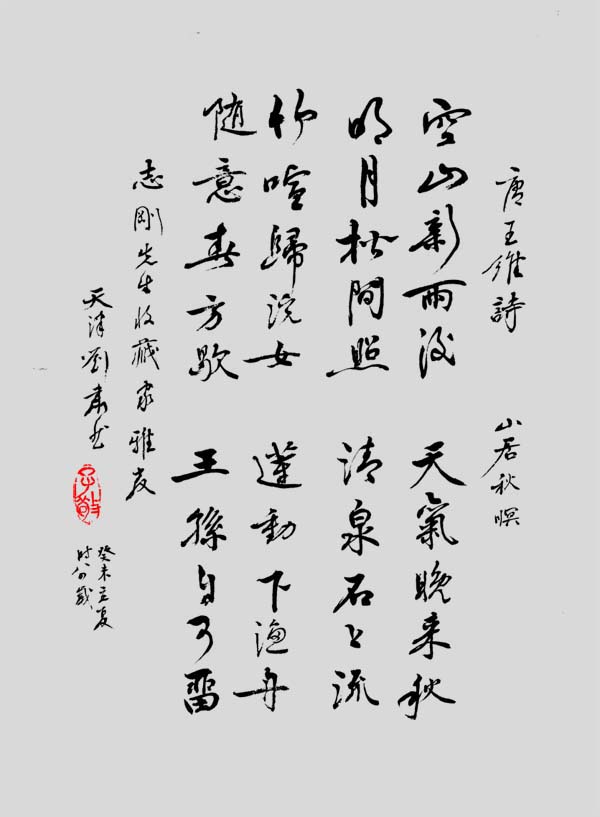 唐王維詩 山居秋暝
空山新雨後 天氣晚来秋
明月松間照 清泉石上流
竹喧歸浣女 蓮動下漁舟
随意春芳歇 王孫自可留
志剛先生收藏家雅友
天津劉
癸未立夏
時八歲